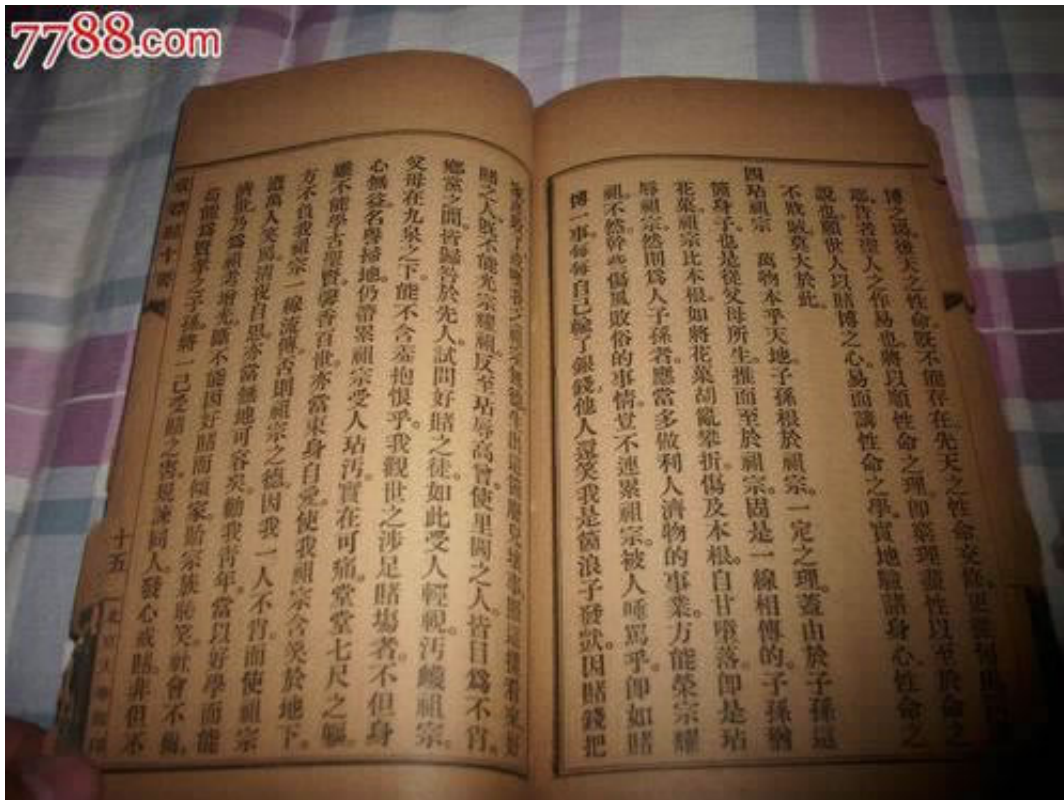 7788.com
博之場後天之性命既不能存在先天之性命
耶昔者聖人之作易也將以順性命之理即窮理盡性以至於命之
說也願世人以賭博之心易而講性命之學實地驗諸身心性命之
不戕賊莫大於此
四玷祖宗 萬物本乎天地子孫根於祖宗一定之理蓋由於子孫這
箇身子也是從父母所生推而至於祖宗固是一線相傳的子孫猶
花菓祖宗比本根如將花菓胡亂攀折傷及本根自甘墮落即是玷
辱祖宗然則為人子孫者應當多做利人濟物的事業方能榮宗耀
祖不然幹些傷風敗俗的事情豈不連累祖宗被人唾罵乎即如賭
博一事每每自己輸了銀錢他人還笑我是箇浪子發獃因賭錢把
賭之人既不能光宗耀祖反至玷辱高曾使里閭之人皆目為不肖
鄉黨之間皆歸咎於先人試問好賭之徒如此受人輕視污衊祖宗
父母在九泉之下能不含羞抱恨乎我觀世之涉足賭場者不但身
心無益名譽掃地仍帶累祖宗受人玷污實在可痛堂堂七尺之軀
縱不能學古聖賢馨香百世亦當束身自愛使我祖宗含笑於地下
方不負我祖宗一線流傳否則祖宗之德因我一人不肖而使祖宗
遭萬人笑罵清夜自思亦當無地可容矣勸我青年當以好學而能
濟世乃為祖考增光斷不能因好賭而傾家貽宗族恥笑社會不齒
苟能為賢孝之子孫將一己受賭之害規諫同人發心戒賭非但不
十五